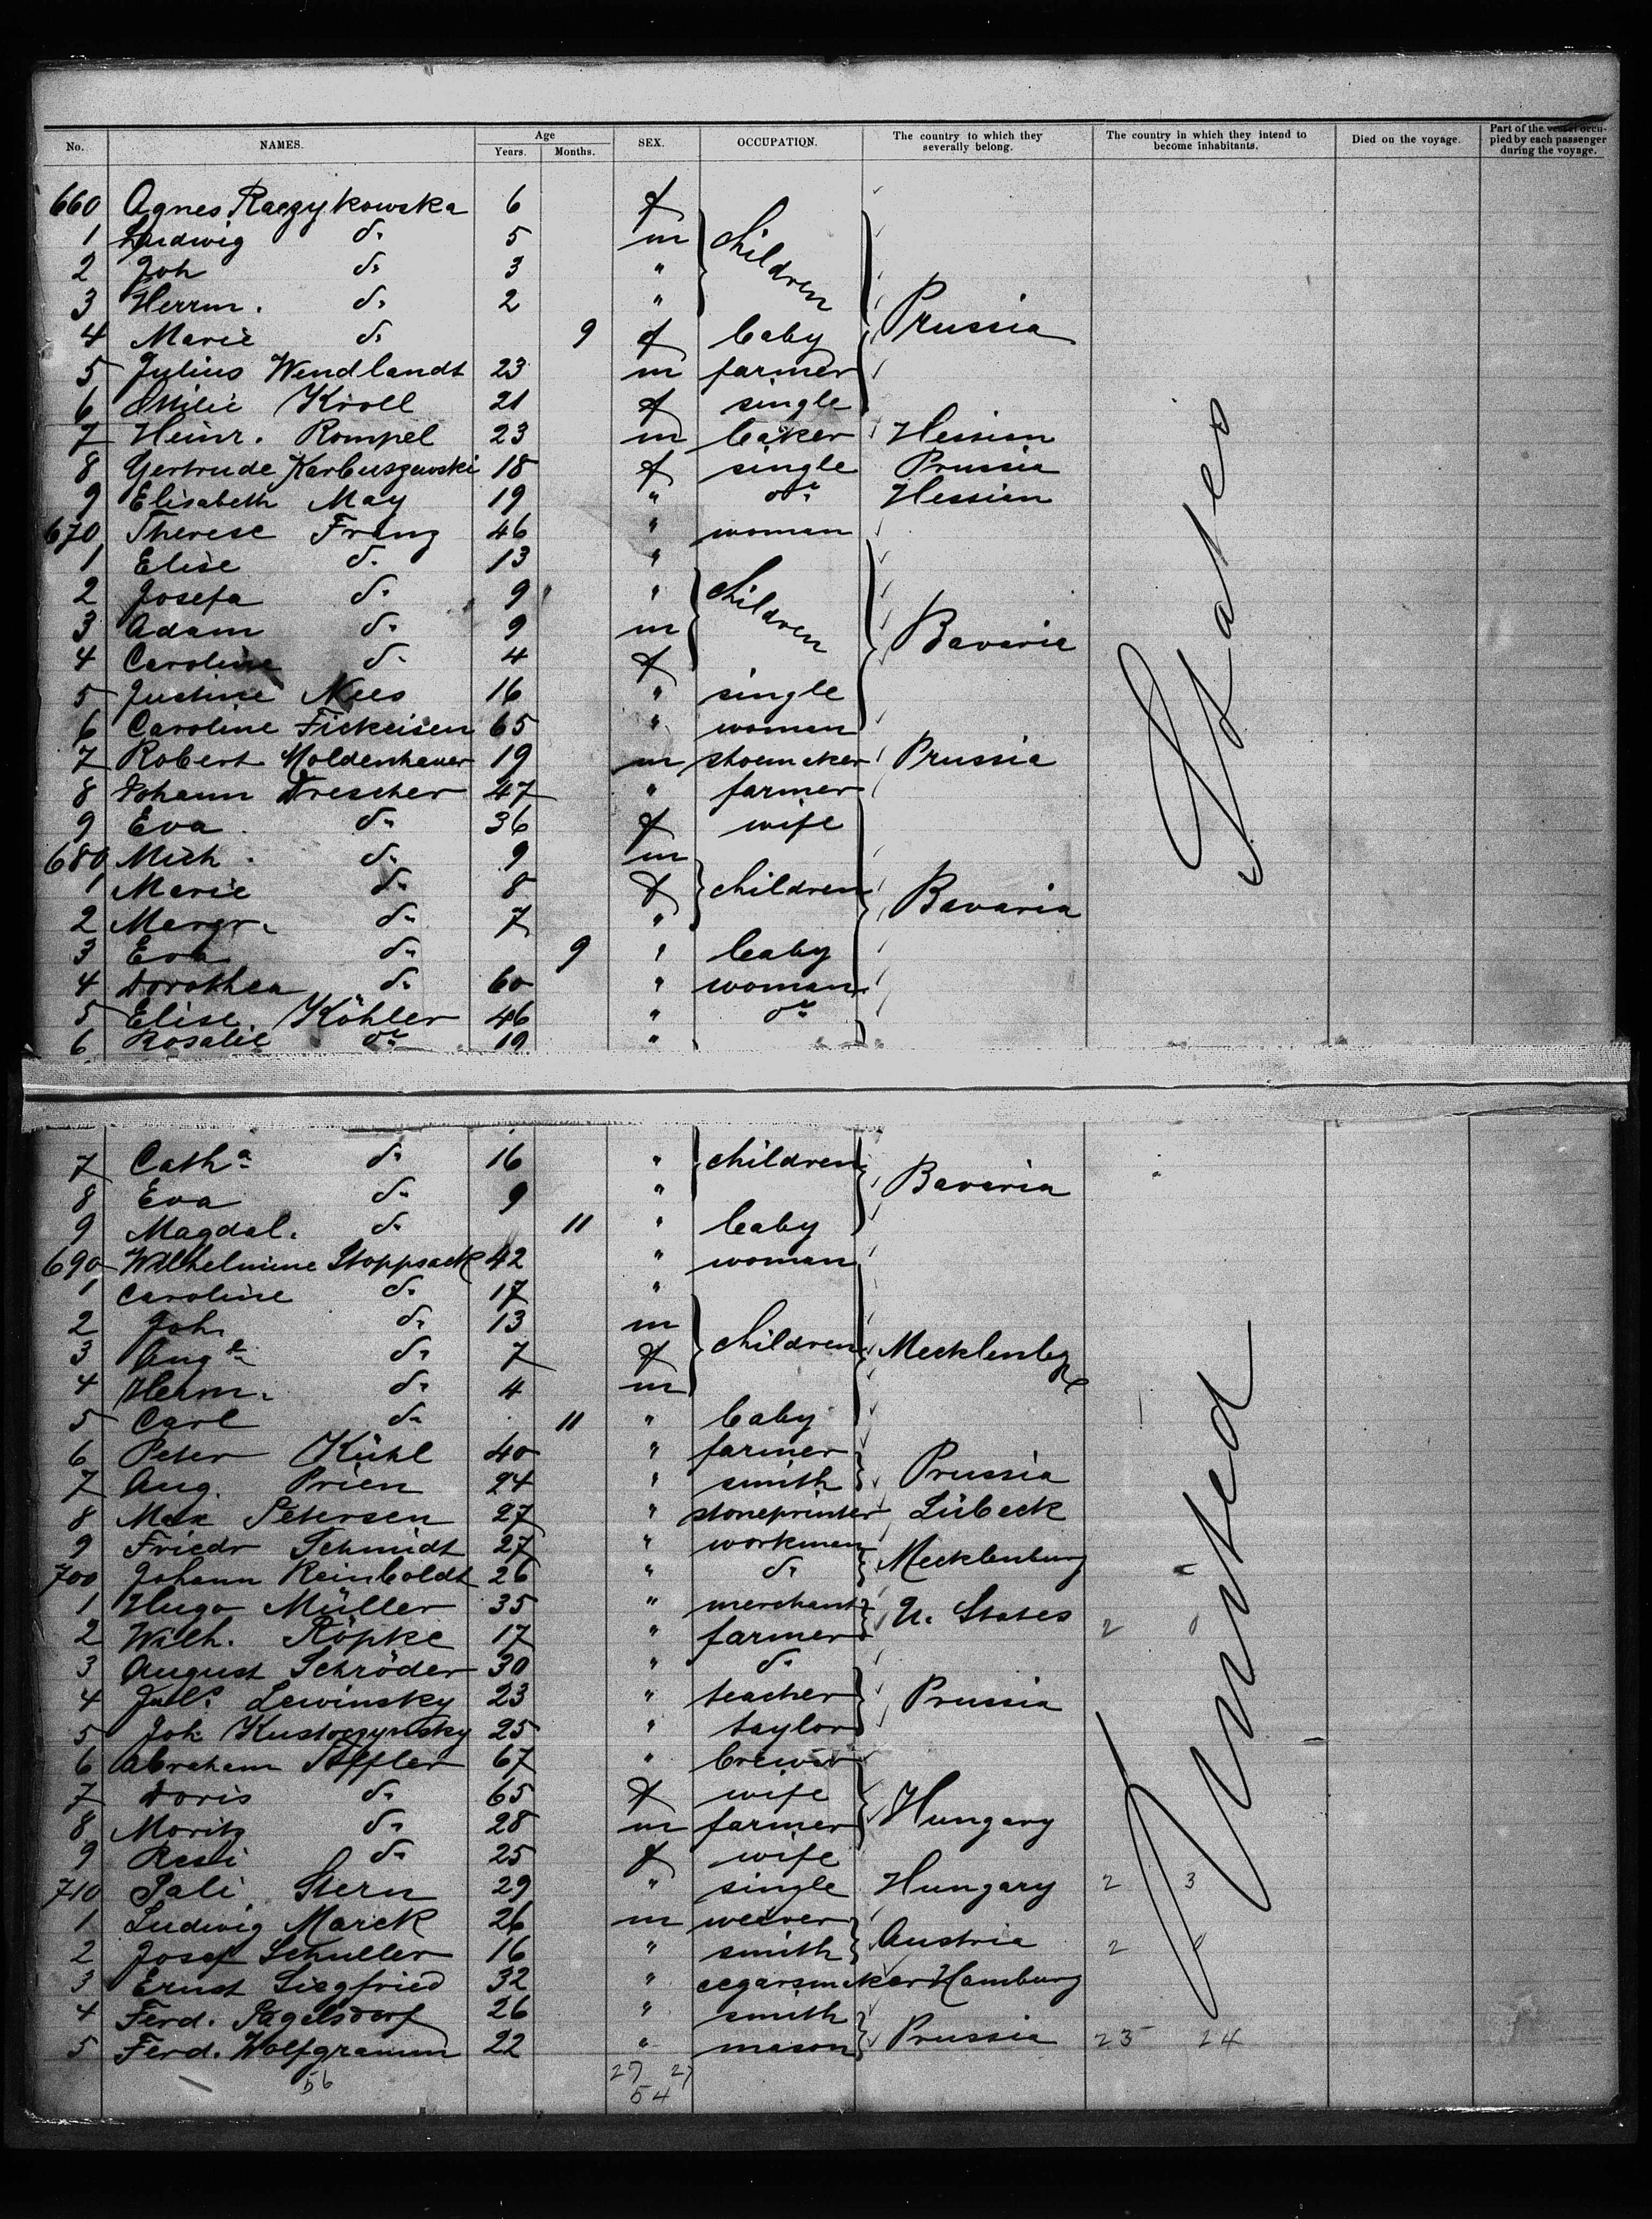 No. NAMES. Age Years. Months. SEX. OCCUPATION. The country to which they severally belong. The country in which they intend to become inhabitants. Died on the voyage. Part of the vessel occupied by each passenger during the voyage.
660 Agnes Raczykowska 6 f
1 Ludwig do 5 m children
2 Joh do 3 "
3 Herrm. do 2 " Prussia
4 Marie do 9 f baby
5 Julius Wendlandt 23 m farmer
6 Ottilie Kroll 21 f single
7 Heinr. Rompel 23 m baker Hessian
8 Gertrude Karbuszewski 18 f single Prussia
9 Elisabeth May 19 " do Hessian
670 Therese Franz 46 " woman
1 Elise do 13 "
2 Josefa do 9 " children
3 Adam do 9 m Bavaria
4 Caroline do 4 f
5 Justine Nees 16 " single
6 Caroline Fickeisen 65 " woman
7 Robert Moldenhauer 19 m shoemaker Prussia
8 Johann Drescher 47 " farmer
9 Eva do 36 f wife
680 Mich. do 9 m
1 Marie do 8 f children Bavaria
2 Margr. do 7 "
3 Eva do 9 " baby
4 Dorothea do 60 " woman
5 Elise Köhler 46 " do
6 Rosalie do 19 "
7 Catha do 16 " children
8 Eva do 9 " Bavaria
9 Magdal. do 11 " baby
690 Wilhelmine Stoppsack 42 " woman
1 Caroline do 17 "
2 Joh. do 13 m
3 Auge do 7 f children Mecklenbg
4 Herm. do 4 m
5 Carl do 11 " baby
6 Peter Kühl 40 " farmer
7 Aug. Prien 24 " smith Prussia
8 Max Petersen 27 " stoneprinter Lübeck
9 Friedr Schmidt 27 " workman
700 Johann Reinboldt 26 " do Mecklenburg
1 Hugo Müller 35 " merchant U. States
2 Wilh. Röpke 17 " farmer 2 0
3 August Schröder 30 " do
4 Juls. Lewinsky 23 " teacher Prussia
5 Joh Kustoczynsky 25 " taylor
6 Abraham Töffler 67 " brewer
7 Doris do 65 f wife
8 Moritz do 28 m farmer Hungary
9 Resi do 25 f wife
710 Pali Stern 29 " single Hungary 2 3
1 Ludwig Marek 26 m weaver
2 Josef Schuller 16 " smith Austria 2 0
3 Ernst Siegfried 32 " cegarsmaker Hamburg
4 Ferd. Pagelsdorf 26 " smith
5 Ferd. Wolfgramm 22 " mason Prussia 23 24
56 27 27
54
United States